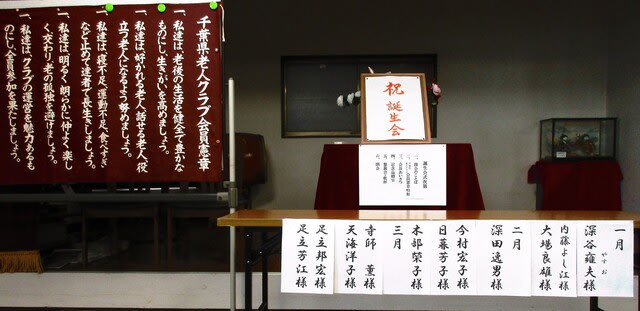 千葉県老人クラブ会員憲章
一、私達は、老後の生活を健全で豊かな
ものにし、生きがいを高めましょう。
一、私達は、好かれる老人、話せる老人、役
立つ老人になるよう努めましょう。
一、私達は、寝不足、運動不足、食べすぎ
など止めて達者で長生きしましょう。
一、私達は、明るく、朗らかに、仲よく、楽し
く、交わり、老の孤独を避けましょう。
一、私達は、クラブの運営を魅力あるも
のにし、全員参加を果たしましょう。
祝
誕生会
誕生会式次第
一月
深谷雍夫様
やすお
内藤よし江様
大場良雄様
二月
深田逸男様
今村宏子様
日暮芳子様
木部榮子様
三月
寺師 薫様
天海洋子様
足立邦宏様
足立芳江様